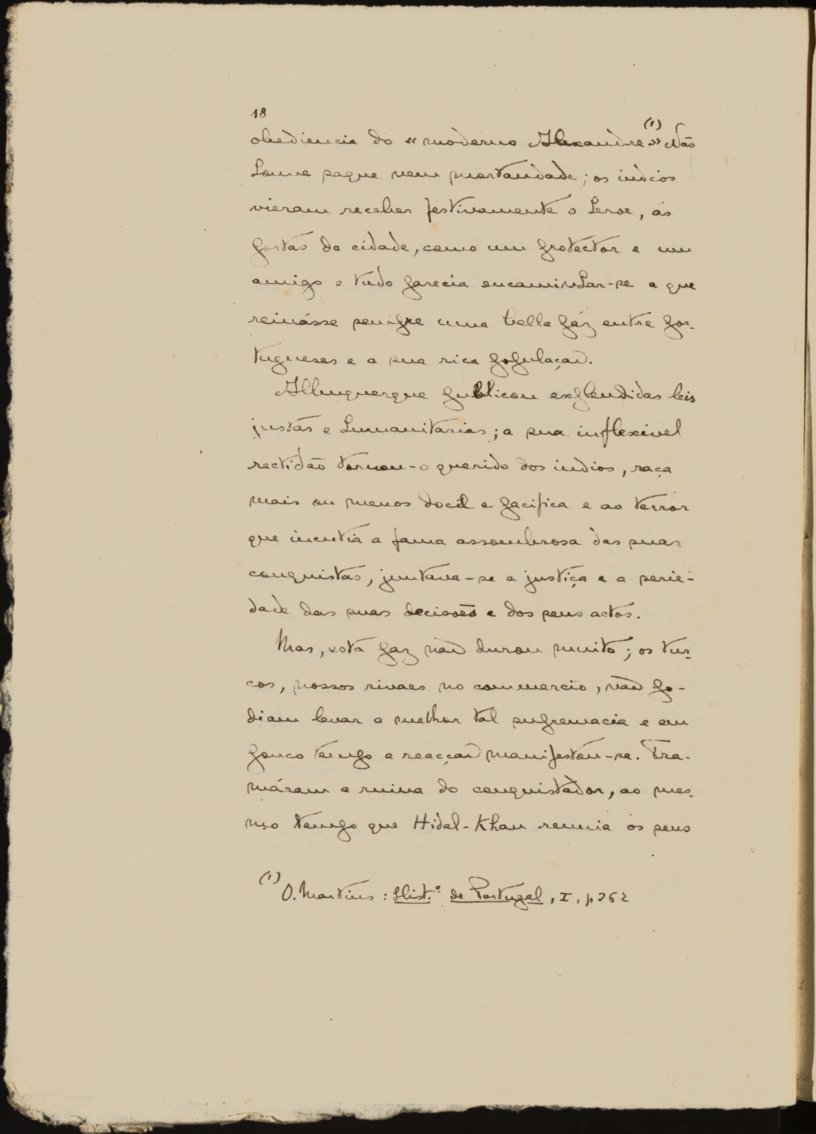 18
obediencia do « moderno Alexandre » (1) Não
houve saque nem mortandade; os indios
vieram receber festivamente o heroe, ás
portas da cidade, como um protector e um
amigo e tudo parecia encaminhar-se a que
reinásse sempre uma bella páz entre por-
tugueses e a sua rica população.
Albuquerque publicou explendidas leis
justas e humanitarias; a sua inflexivel
rectidão tornou-o querido dos indios, raça
mais ou menos docil e pacifica e ao terror
que incutia a fama assombrosa das suas
conquistas, juntava-se a justiça e a serie-
dade das suas decisões e dos seus actos.
Mas, esta paz não durou muito; os tur-
cos, nossos rivaes no commercio, não po-
diam levar a melhor tal supremacia e em
pouco tempo a reacção manifestou-se. Tra-
máram a ruina do conquistador, ao mes-
mo tempo que Hidal-Khan reunia os seus
(1) O. Martins: Hist.ª de Portugal, I, p 262